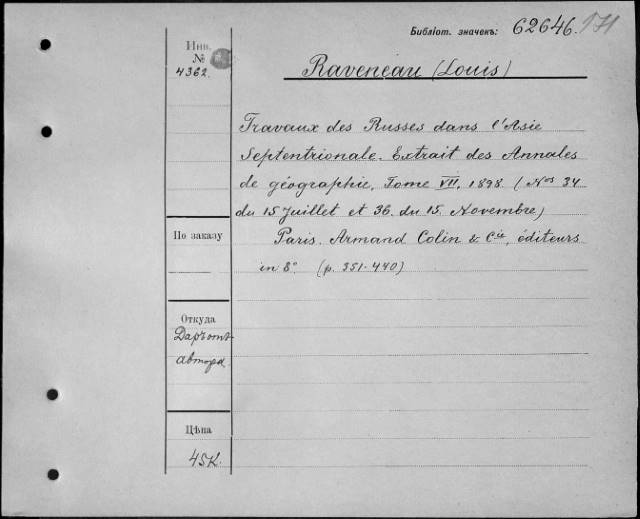 Библіот. значекъ: 62646.
Инв.
№
4362.
Raveneau (Louis)
Travaux des Russes dans l'Asie
Septentrionale. Extrait des Annales
de géographie, Tome VII, 1898. (Nos 34
du 15 Juillet et 36. du 15. Novembre)
Paris. Armand Colin & Cie, éditeurs
in 8° (p. 351-440)
По заказу
Откуда
Даръ отъ
автора
Цѣна
45к.